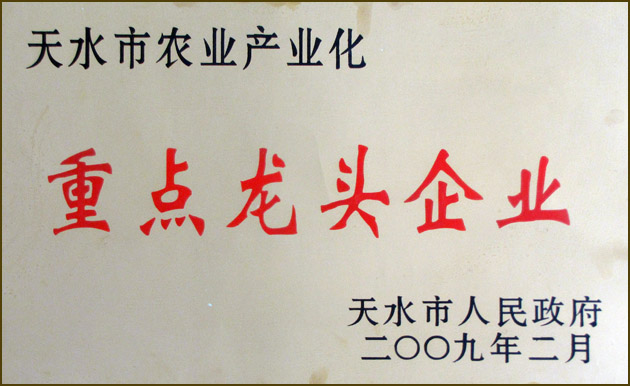 天水市农业产业化
重点龙头企业
天水市人民政府
二〇〇九年二月